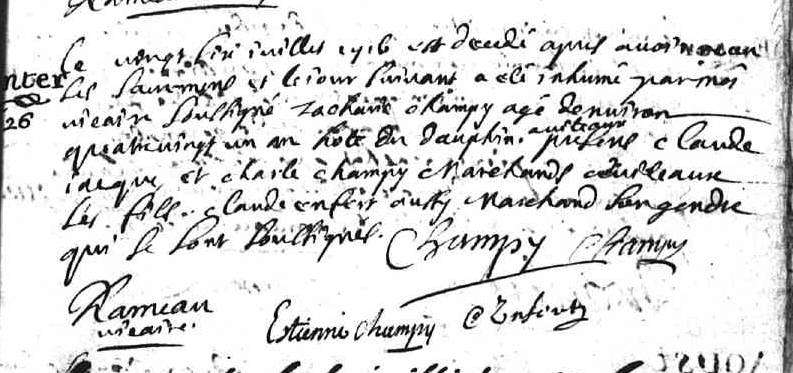 Rameau
le vingt six juillet 1716 est decedé apres avoir receu
nter les sacremens et le jour suivant a eté inhumé par moi
26 vicaire soussigné Zacharie Champy agé denviron
quatrevingt un an hote du dauphin. presens Claude
jacque et charle Champy Marchands
ses fills. claude enfert aussy Marchand son gendre
qui se sont soussignés. Champy Champy
Rameau
vicaire. Estienne champy C Enfert